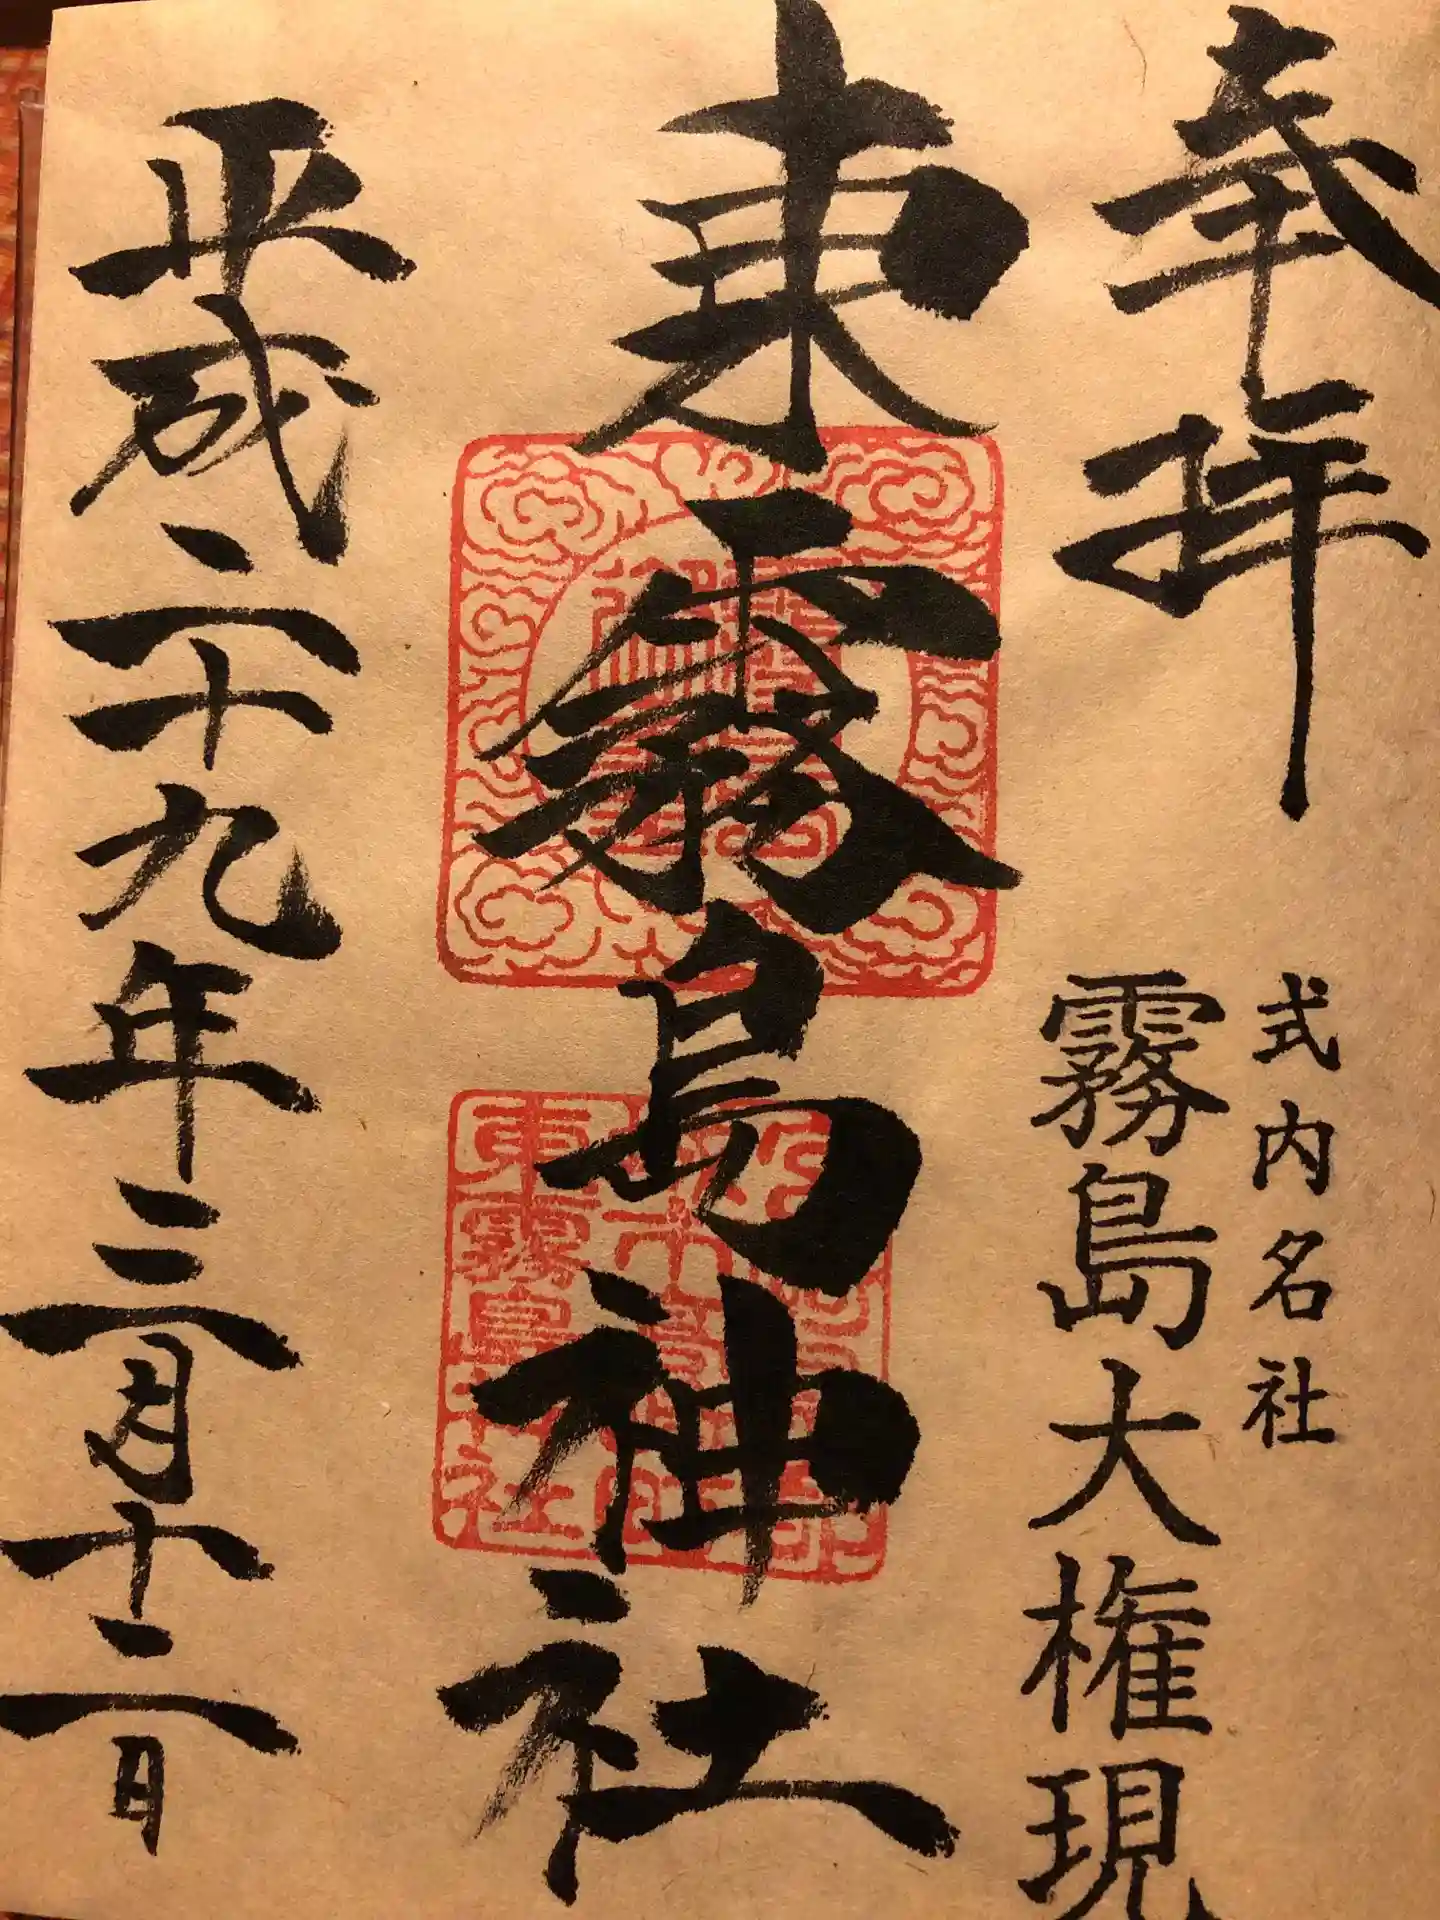 奉拝
式内名社
霧島大権現
東霧島神社
平成二十九年三月十二日
東霧島神社